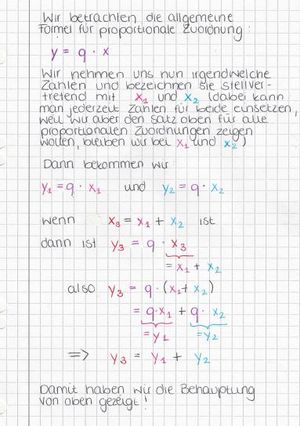 Wir betrachten die allgemeine
Formel für proportionale Zuordnung:
y = q · x
Wir nehmen uns nun irgendwelche
Zahlen und bezeichnen sie stellver-
tretend mit x₁ und x₂ (dabei kann
man jederzeit Zahlen für beide einsetzen,
weil wir aber den Satz oben für alle
proportionalen Zuordnungen zeigen
wollen, bleiben wir bei x₁ und x₂)
Dann bekommen wir
y₁ = q · x₁ und y₂ = q · x₂
wenn x₃ = x₁ + x₂ ist
dann ist y₃ = q · x₃
= x₁ + x₂
also y₃ = q · (x₁ + x₂)
= q·x₁ + q · x₂
= y₁ = y₂
=> y₃ = y₁ + y₂
Damit haben wir die Behauptung
von oben gezeigt!